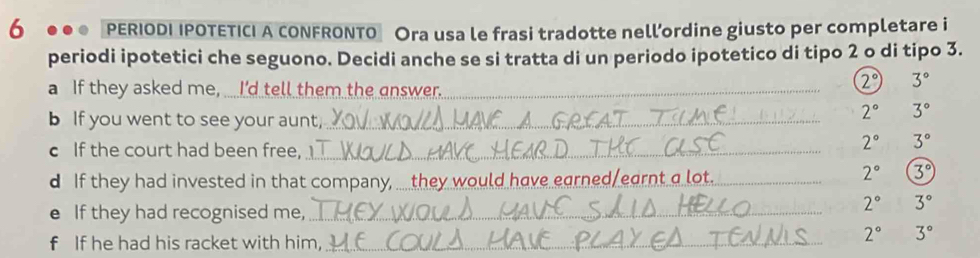 6 PERIODI IPOTETICI A CONFRONTO Ora usa le frasi tradotte nell'ordine giusto per completare i
periodi ipotetici che seguono. Decidi anche se si tratta di un periodo ipotetico di tipo 2 o di tipo 3.
a If they asked me, I'd tell them the answer. 2° 3°
b If you went to see your aunt, YOU WOULD HAVE A GREAT TIME! 2° 3°
c If the court had been free, IT WOULD HAVE HEARD THE CASE 2° 3°
d If they had invested in that company, they would have earned/earnt a lot. 2° 3°
e If they had recognised me, THEY WOULD HAVE SAID HELLO 2° 3°
f If he had his racket with him, HE COULD HAVE PLAYED TENNIS 2° 3°